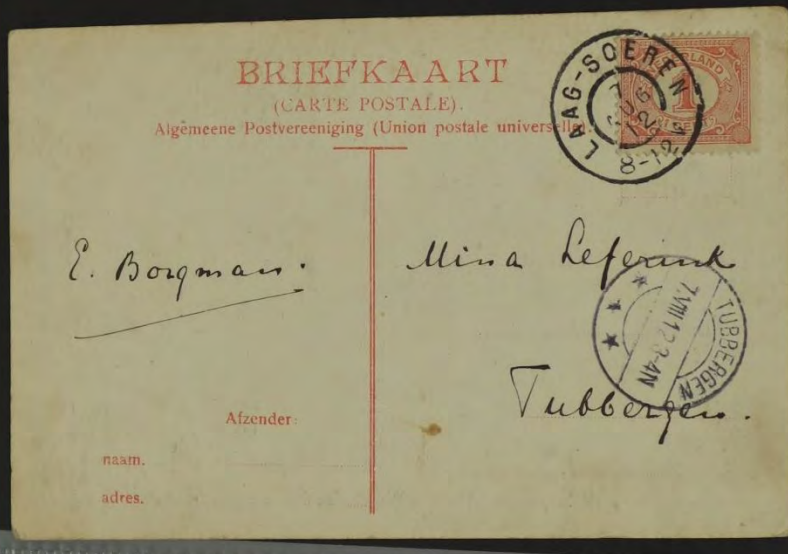 BRIEFKAART
(CARTE POSTALE).
Algemeene Postvereeniging (Union postale universelle).
LAAG-SOEREN
7 AUG 12
8-12
1
E. Borgman.
Mina Leferink
TUBBERGEN
7.VIII.12.3-4N
Tubbergen.
Afzender:
naam.
adres.